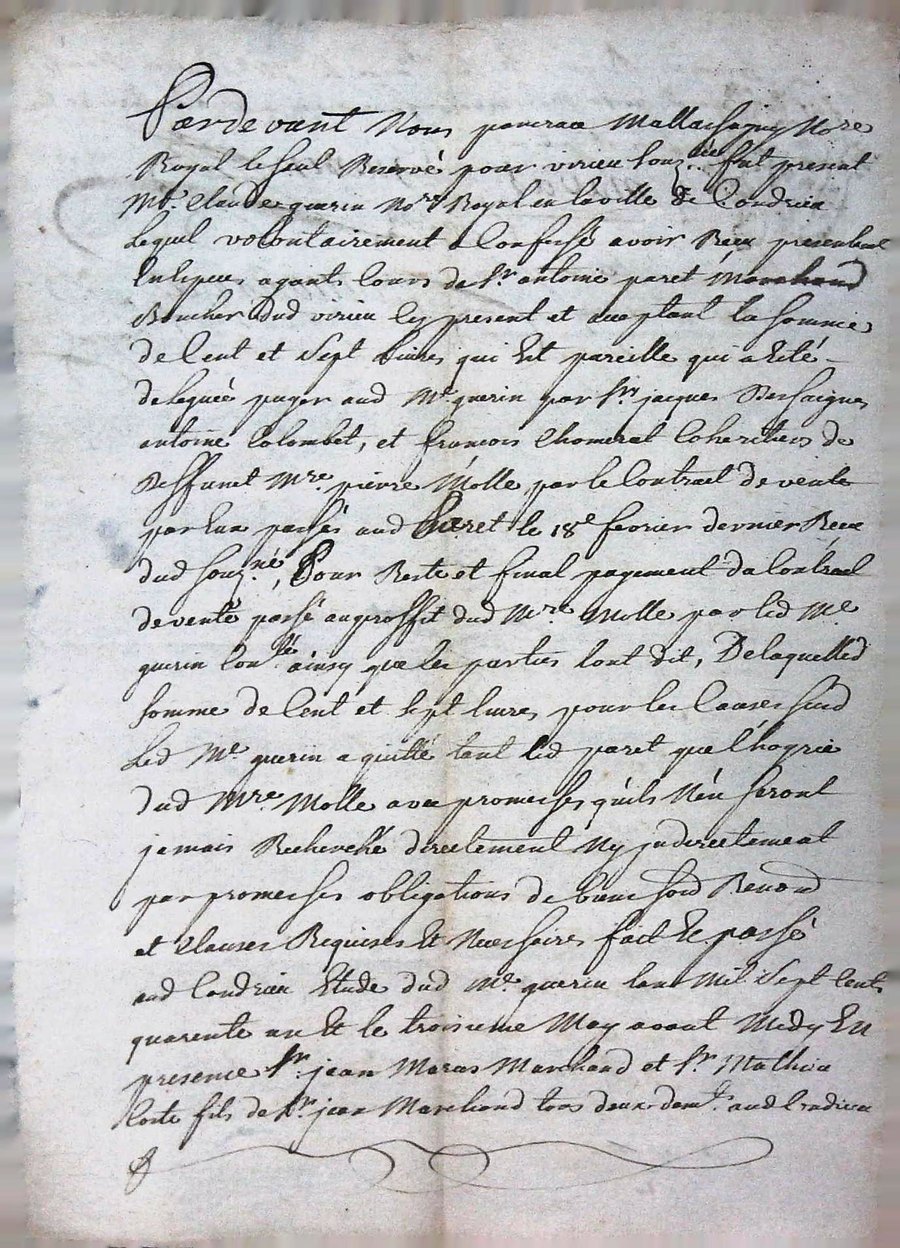 Pardevant Nous pancrace Mallassagny No.re
Royal le seul Reservé pour virieu souz.né fut present
M.e Claude guerin No.re Royal en la ville de Condrieu
Lequel volontairement a Confessé avoir Receu presentem.t
En Especes ayants Cours de S.r antoine paret Marchand
Boucher dud virieu Cy present et acceptant la somme
de Cent et sept Livres qui Est pareille qui a Eté
deleguée payer aud M.e guerin par S.rs jacques Dessaignes
antoine Colombet, et francois Chomerat Coheritiers de
Deffunct M.re pierre Molle, par le Contract de vente
par Eux passés aud Paret le 18.e fevrier dernier Receu
dud souz.né, Pour Reste et final payement du Contract
de vente passé au proffit dud M.re Molle par led M.e
guerin ainsy que les parties l'ont dit, De laquelled
somme de Cent et sept livres, pour les Causes susd
Led M.e guerin a quitté tant led paret que l'hoyrie
dud M.re Molle avec promesses qu'ils N'en seront
jamais Recherché directement Ny judirectement
par promesses obligations de biens soud Renond
et Clauses Requises Et Necessaires faict Et passé
aud Condrieu Etude dud M.e guerin l'an Mil Sept Cents
quarente un Et le troisieme May avant Midy En
presence S.r jean Maras Marchand et S.r Mathieu
Coste fils de S.r jean Marchand tous deux dem.t aud Condrieu